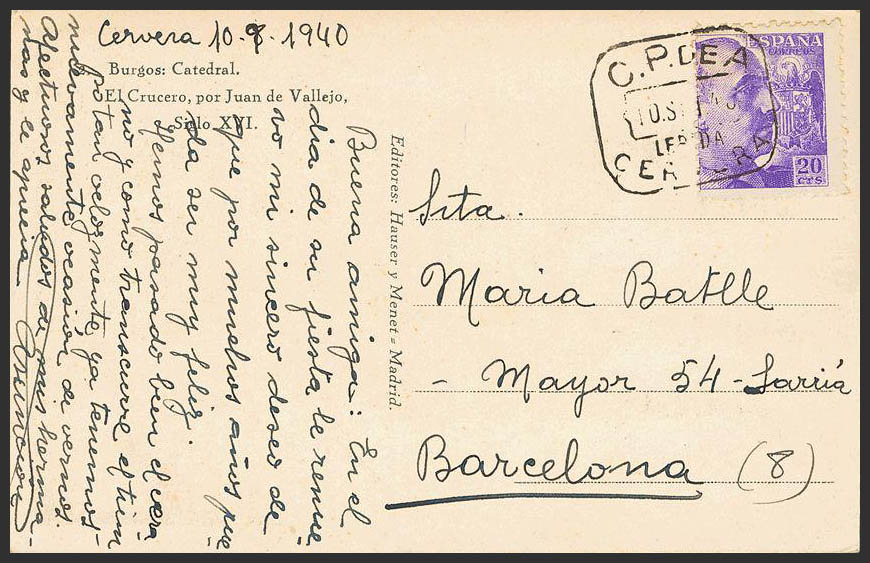 Cervera 10-9-1940
Burgos: Catedral.
El Crucero, por Juan de Vallejo,
Siglo XVI.
Buena amiga: En el
dia de su fiesta le renue
vo mi sincero deseo de
que por muchos años pue
da ser muy feliz.
Hemos pasado bien el vera
no y como transcurre el tiem
po tan velozmente ya tenemos
nuevamente ocasión de vernos.
Afectuosos saludos de mis herma-
nas y le aprecia Asunción
Editores: Hauser y Menet = Madrid.
C.P. CERVERA
10.SET.40
LERIDA
CERVERA
ESPAÑA
CORREOS
20
CTS
Srta.
Maria Batlle
- Mayor 54 - Sarriá
Barcelona (8)